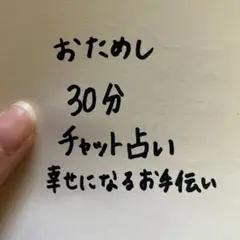 おためし
30分
チャット占い
幸せになるお手伝い